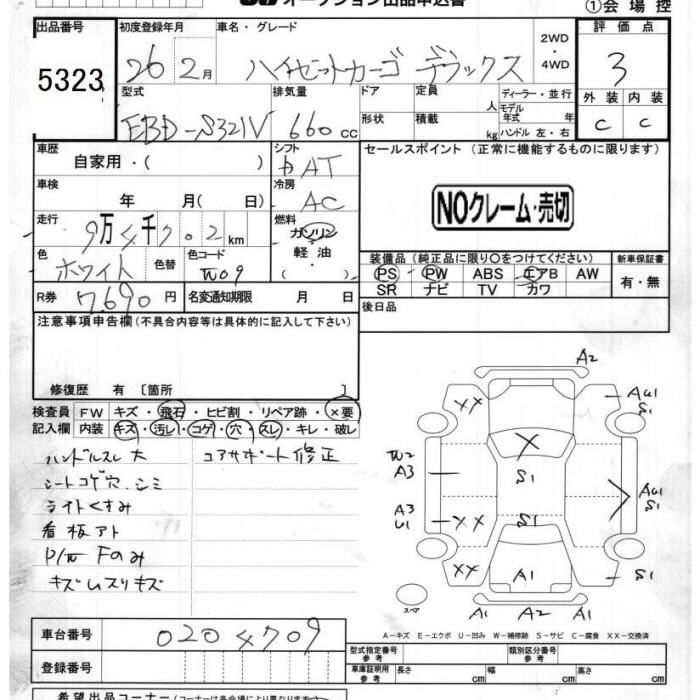 オークション出品申込書
①会場控
出品番号 初度登録年月 車名・グレード 評価点
5323 26 2月 ハイゼットカーゴ デラックス 2WD・4WD 3
型式 排気量 ドア 定員 ディーラー・並行 外装 内装
EBD-S321V 660cc 形状 積載 人 kg モデル年式 年式 ハンドル 左・右 C C
車歴 シフト セールスポイント (正常に機能するものに限ります)
自家用・( ) AT
車検 冷房
年 月(日) AC
NOクレーム・売切
走行 燃料
9万4千702km ガソリン
軽油
( )
色 色替 色コード 装備品(純正品に限り○をつけてください) 新車保証書
ホワイト W09 PS PW ABS エアB AW 有・無
SR ナビ TV カワ
R券 7,690円 名変通知期限 月 日 後日品
注意事項申告欄(不具合内容等は具体的に記入して下さい)
修復歴 有 [箇所 ]
検査員 FW キズ・飛石・ヒビ割・リペア跡・×要
記入欄 内装 キズ・汚レ・コゲ・穴・スレ・キレ・破レ
ハンドルスレ大 コアサポート修正
シートコゲ穴、シミ
ライトくすみ
看板アト
P/W Fのみ
キズムスリキズ
A2
XX
S1
X
W2
A3
S1
S1
A3
U1
XX
S1
S1
XX
A1
S1
スペア
A1 A2 A1
A-キズ E-エクボ U-凹み W-補修跡 S-サビ C-腐食 XX-交換済
車台番号 0204709 型式指定番号 参考 類別区分番号 参考
登録番号 車庫証明用 参考 長さ cm 幅 cm 高さ cm
希望出品コーナー(コーナーは各会場により異なります)